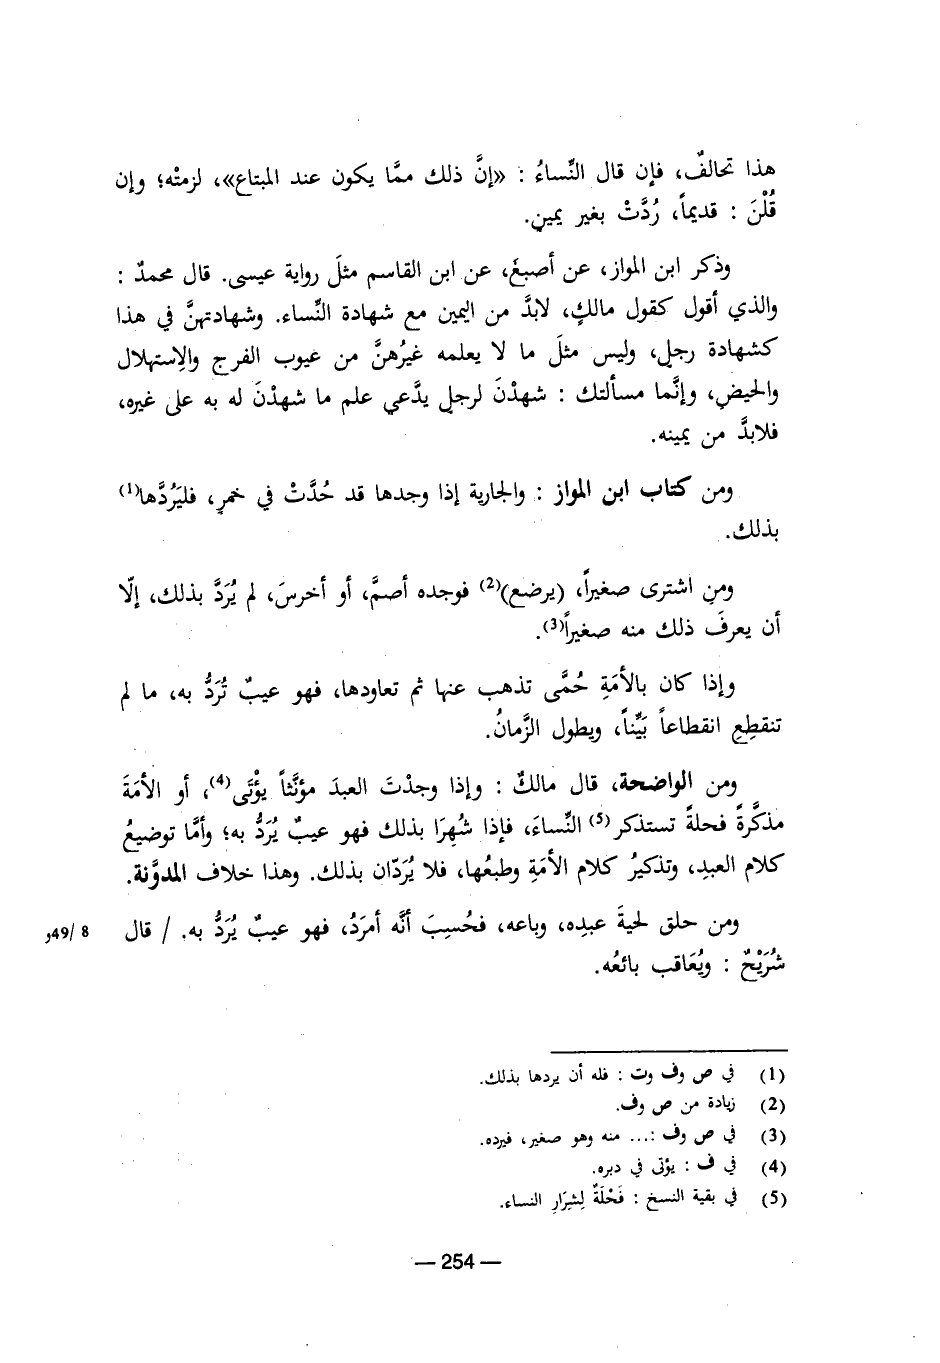 هذا تحالفٌ، فإن قال النِّساءُ : «إنَّ ذلك ممَّا يكون عند المبتاع»، لزمتْه؛ وإن
قُلْنَ : قديماً، رُدَّتْ بغير يمين.
وذكر ابن المواز، عن أصبغَ، عن ابن القاسم مثلَ رواية عيسى. قال محمدٌ :
والذي أقول كقول مالكٍ، لابدَّ من اليمين مع شهادة النِّساء. وشهادتهنَّ في هذا
كشهادة رجلٍ، وليس مثلَ ما لا يعلمه غيرُهنَّ من عيوب الفرج والاِستهلال
والحيضِ، وإنَّما مسألتك : شهدْنَ لرجلٍ يدَّعي علم ما شهدْنَ له به على غيره،
فلابدَّ من يمينه.
ومن كتاب ابن المواز : والجارية إذا وجدها قد حُدَّتْ في خمرٍ، فليَرُدَّها(1)
بذلك.
ومنِ اشترى صغيراً، (يرضع)(2) فوجده أصمَّ، أو أخرسَ، لم يُرَدَّ بذلك، إلّا
أن يعرفَ ذلك منه صغيراً(3).
وإذا كان بالأمَةِ حُمَّى تذهب عنها ثم تعاودها، فهو عيبٌ تُرَدُّ به، ما لم
تنقطِعِ انقطاعاً بَيِّناً، ويطول الزَّمانُ.
ومن الواضحة، قال مالكٌ : وإذا وجدْتَ العبدَ مؤنَّثاً يؤْتَى(4)، أو الأمَةَ
مذكَّرةً فحلةً تستذكر(5) النِّساءَ، فإذا شُهِرَا بذلك فهو عيبٌ يُرَدُّ به؛ وأمَّا توضيعُ
كلام العبدِ، وتذكيرُ كلام الأمَةِ وطبعُها، فلا يُرَدّان بذلك. وهذا خلاف المدوَّنة.
ومن حلق لحيةَ عبدِه، وباعه، فحُسِبَ أنَّه أمرَدُ، فهو عيبٌ يُرَدُّ به. / قال
8 /49و
شُرَيْحٌ : ويُعَاقب بائعُه.
(1) في ص وف وت : فله أن يردها بذلك.
(2) زيادة من ص وف.
(3) في ص وف :... منه وهو صغير، فيرده.
(4) في ف : يؤتى في دبره.
(5) في بقية النسخ : فَحْلَةٌ لِشِرَارِ النساء.
— 254 —